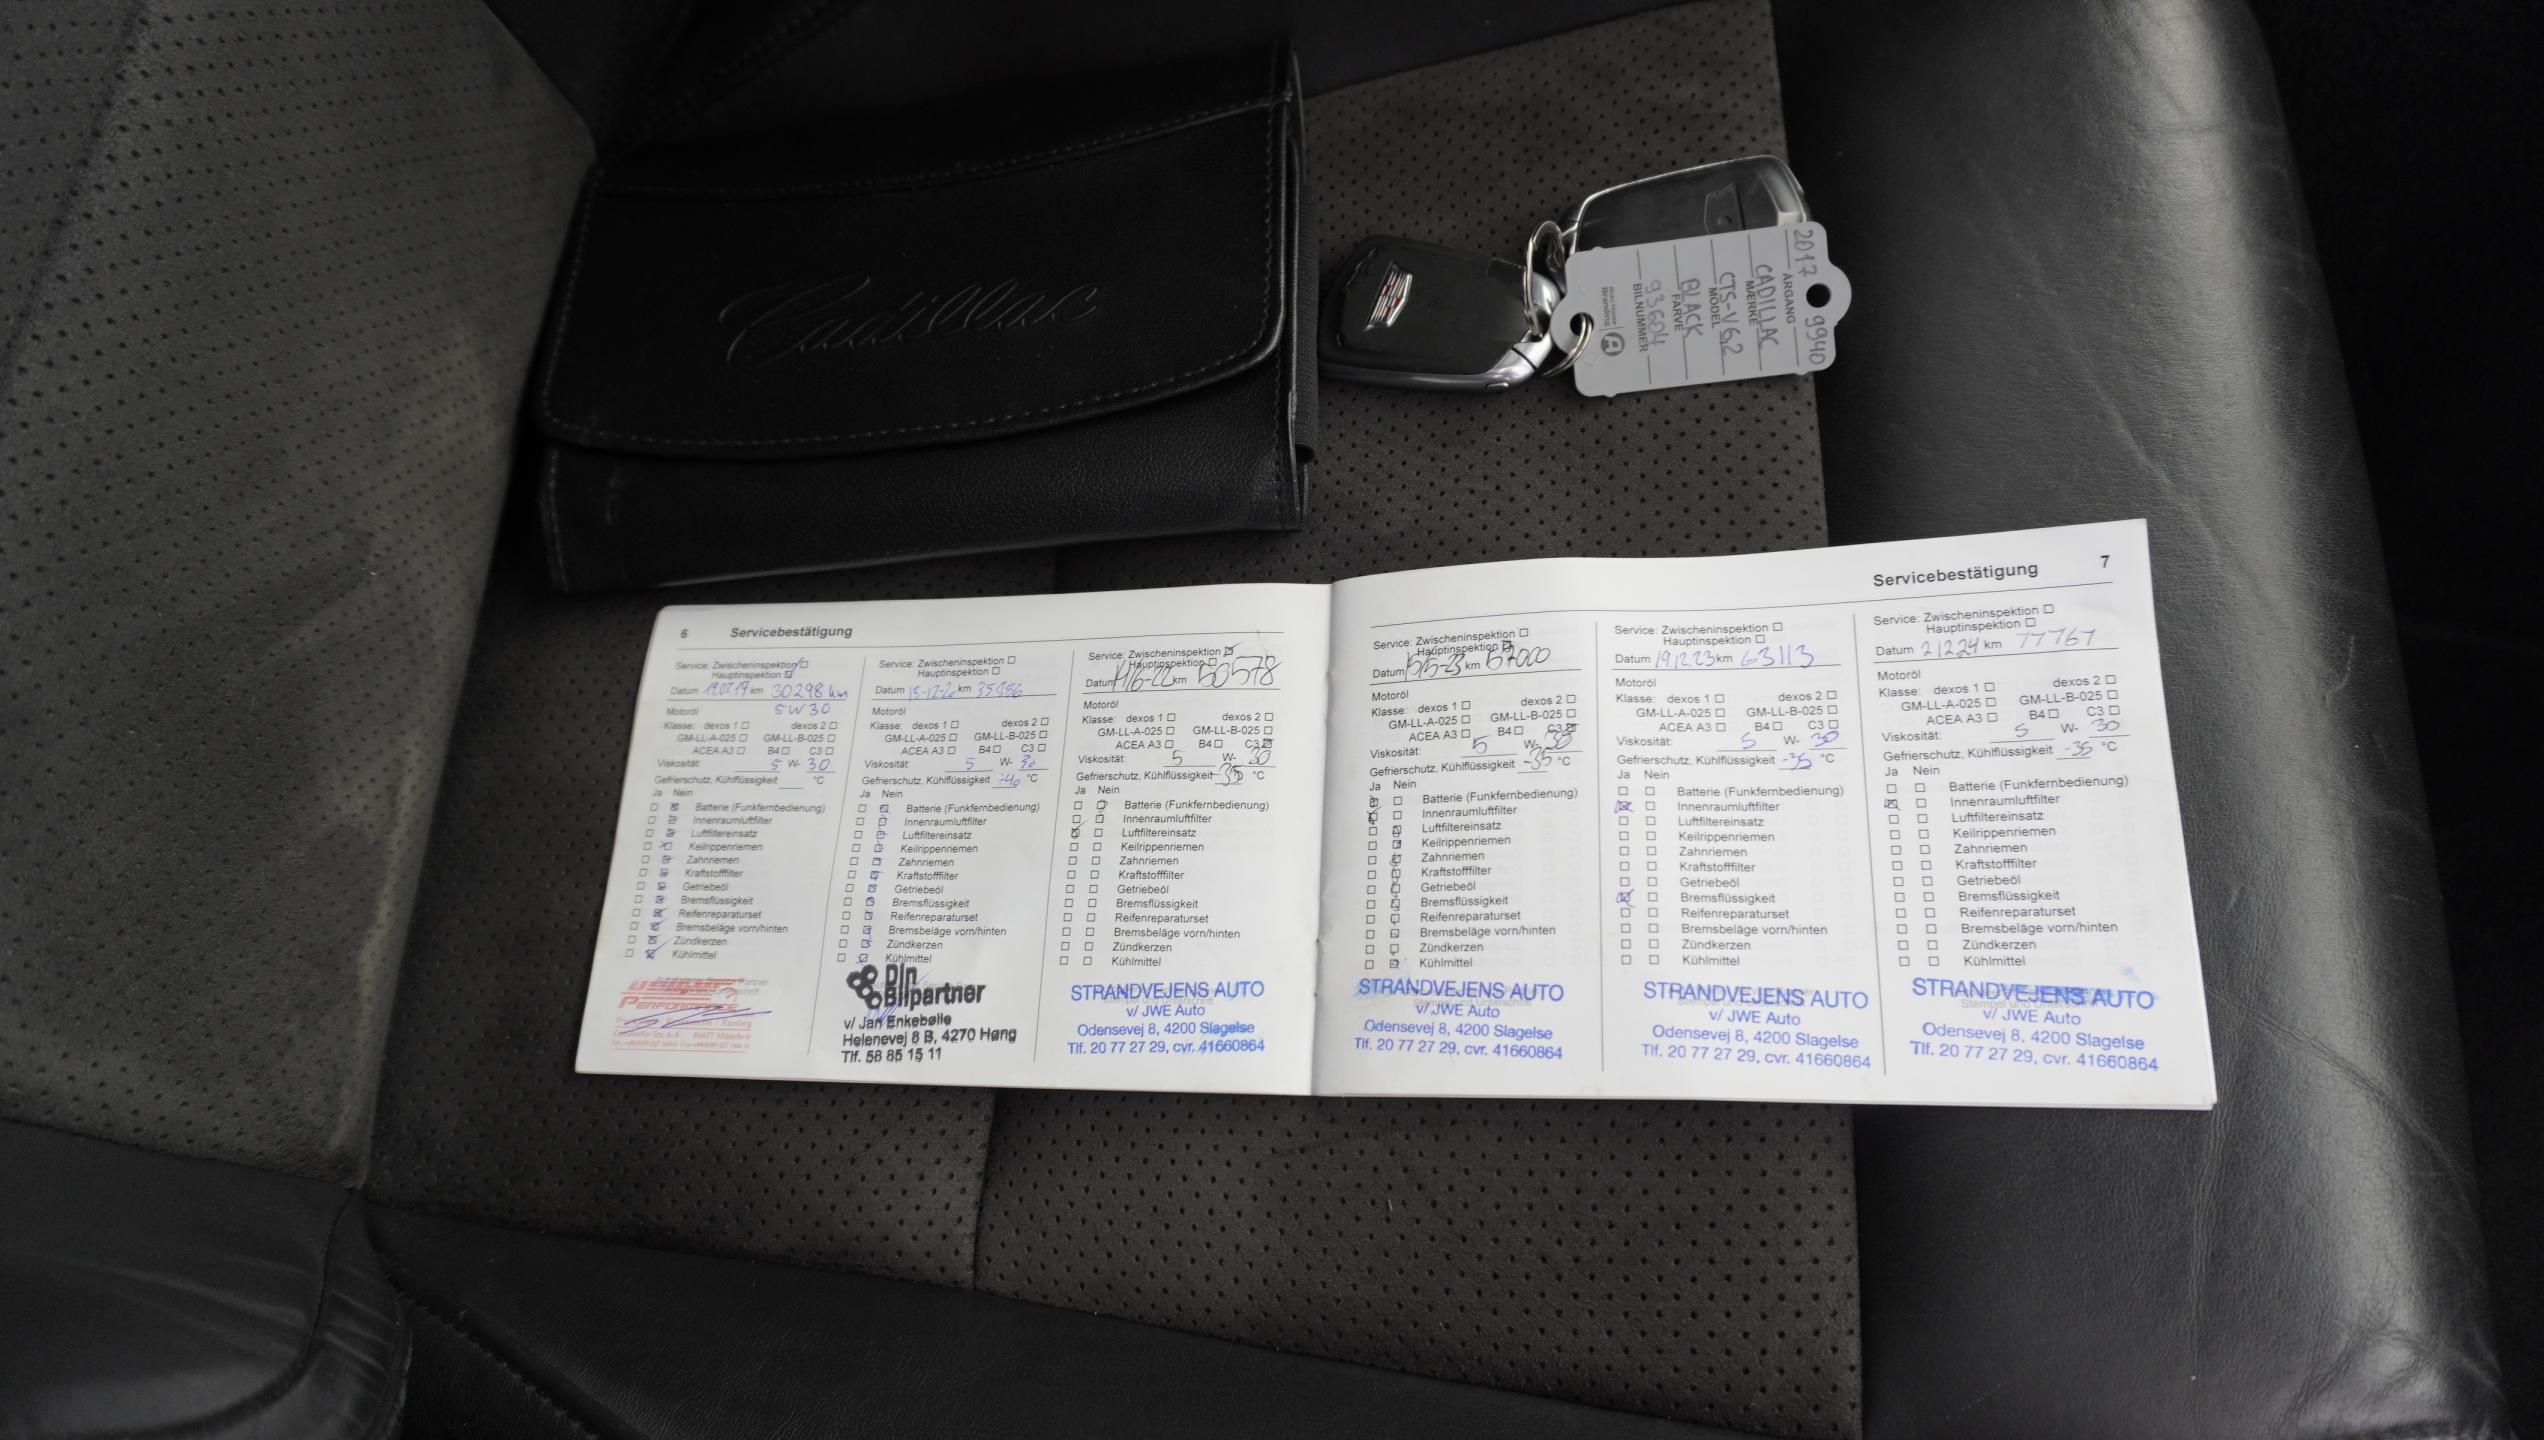 Cadillac
2017 9940
ÅRGANG
CADILLAC
MÆRKE
CTS-V 6,2
MODEL
BLACK
FARVE
93604
BILNUMMER
Branding
6 Servicebestätigung
Service: Zwischeninspektion
Hauptinspektion
Datum 19.07.19 km 30298 km
Motoröl 5W30
Klasse: dexos 1 dexos 2
GM-LL-A-025 GM-LL-B-025
ACEA A3 B4 C3
Viskosität: 5 W- 30
Gefrierschutz, Kühlflüssigkeit °C
Ja Nein
Batterie (Funkfernbedienung)
Innenraumluftfilter
Luftfiltereinsatz
Keilrippenriemen
Zahnriemen
Kraftstofffilter
Getriebeöl
Bremsflüssigkeit
Reifenreparaturset
Bremsbeläge vorn/hinten
Zündkerzen
Kühlmittel
Performance
81677 München
Service: Zwischeninspektion
Hauptinspektion
Datum km
Motoröl
Klasse: dexos 1 dexos 2
GM-LL-A-025 GM-LL-B-025
ACEA A3 B4 C3
Viskosität: 5 W- 30
Gefrierschutz, Kühlflüssigkeit -40 °C
Ja Nein
Batterie (Funkfernbedienung)
Innenraumluftfilter
Luftfiltereinsatz
Keilrippenriemen
Zahnriemen
Kraftstofffilter
Getriebeöl
Bremsflüssigkeit
Reifenreparaturset
Bremsbeläge vorn/hinten
Zündkerzen
Kühlmittel
Din
Bilpartner
v/ Jan Enkebølle
Helenevej 8 B, 4270 Høng
Tlf. 58 85 15 11
Service: Zwischeninspektion
Hauptinspektion
Datum 14/6-22 km 50578
Motoröl
Klasse: dexos 1 dexos 2
GM-LL-A-025 GM-LL-B-025
ACEA A3 B4 C3
Viskosität: 5 W- 30
Gefrierschutz, Kühlflüssigkeit -35 °C
Ja Nein
Batterie (Funkfernbedienung)
Innenraumluftfilter
Luftfiltereinsatz
Keilrippenriemen
Zahnriemen
Kraftstofffilter
Getriebeöl
Bremsflüssigkeit
Reifenreparaturset
Bremsbeläge vorn/hinten
Zündkerzen
Kühlmittel
STRANDVEJENS AUTO
v/ JWE Auto
Odensevej 8, 4200 Slagelse
Tlf. 20 77 27 29, cvr. 41660864
Servicebestätigung 7
Service: Zwischeninspektion
Hauptinspektion
Datum 15/5-23 km 57000
Motoröl
Klasse: dexos 1 dexos 2
GM-LL-A-025 GM-LL-B-025
ACEA A3 B4 C3
Viskosität: 5 W- 30
Gefrierschutz, Kühlflüssigkeit -35 °C
Ja Nein
Batterie (Funkfernbedienung)
Innenraumluftfilter
Luftfiltereinsatz
Keilrippenriemen
Zahnriemen
Kraftstofffilter
Getriebeöl
Bremsflüssigkeit
Reifenreparaturset
Bremsbeläge vorn/hinten
Zündkerzen
Kühlmittel
STRANDVEJENS AUTO
v/ JWE Auto
Odensevej 8, 4200 Slagelse
Tlf. 20 77 27 29, cvr. 41660864
Service: Zwischeninspektion
Hauptinspektion
Datum 19.12.23 km 63113
Motoröl
Klasse: dexos 1 dexos 2
GM-LL-A-025 GM-LL-B-025
ACEA A3 B4 C3
Viskosität: 5 W- 30
Gefrierschutz, Kühlflüssigkeit -35 °C
Ja Nein
Batterie (Funkfernbedienung)
Innenraumluftfilter
Luftfiltereinsatz
Keilrippenriemen
Zahnriemen
Kraftstofffilter
Getriebeöl
Bremsflüssigkeit
Reifenreparaturset
Bremsbeläge vorn/hinten
Zündkerzen
Kühlmittel
STRANDVEJENS AUTO
v/ JWE Auto
Odensevej 8, 4200 Slagelse
Tlf. 20 77 27 29, cvr. 41660864
Service: Zwischeninspektion
Hauptinspektion
Datum 21224 km 77767
Motoröl
Klasse: dexos 1 dexos 2
GM-LL-A-025 GM-LL-B-025
ACEA A3 B4 C3
Viskosität: 5 W- 30
Gefrierschutz, Kühlflüssigkeit -35 °C
Ja Nein
Batterie (Funkfernbedienung)
Innenraumluftfilter
Luftfiltereinsatz
Keilrippenriemen
Zahnriemen
Kraftstofffilter
Getriebeöl
Bremsflüssigkeit
Reifenreparaturset
Bremsbeläge vorn/hinten
Zündkerzen
Kühlmittel
STRANDVEJENS AUTO
v/ JWE Auto
Odensevej 8, 4200 Slagelse
Tlf. 20 77 27 29, cvr. 41660864